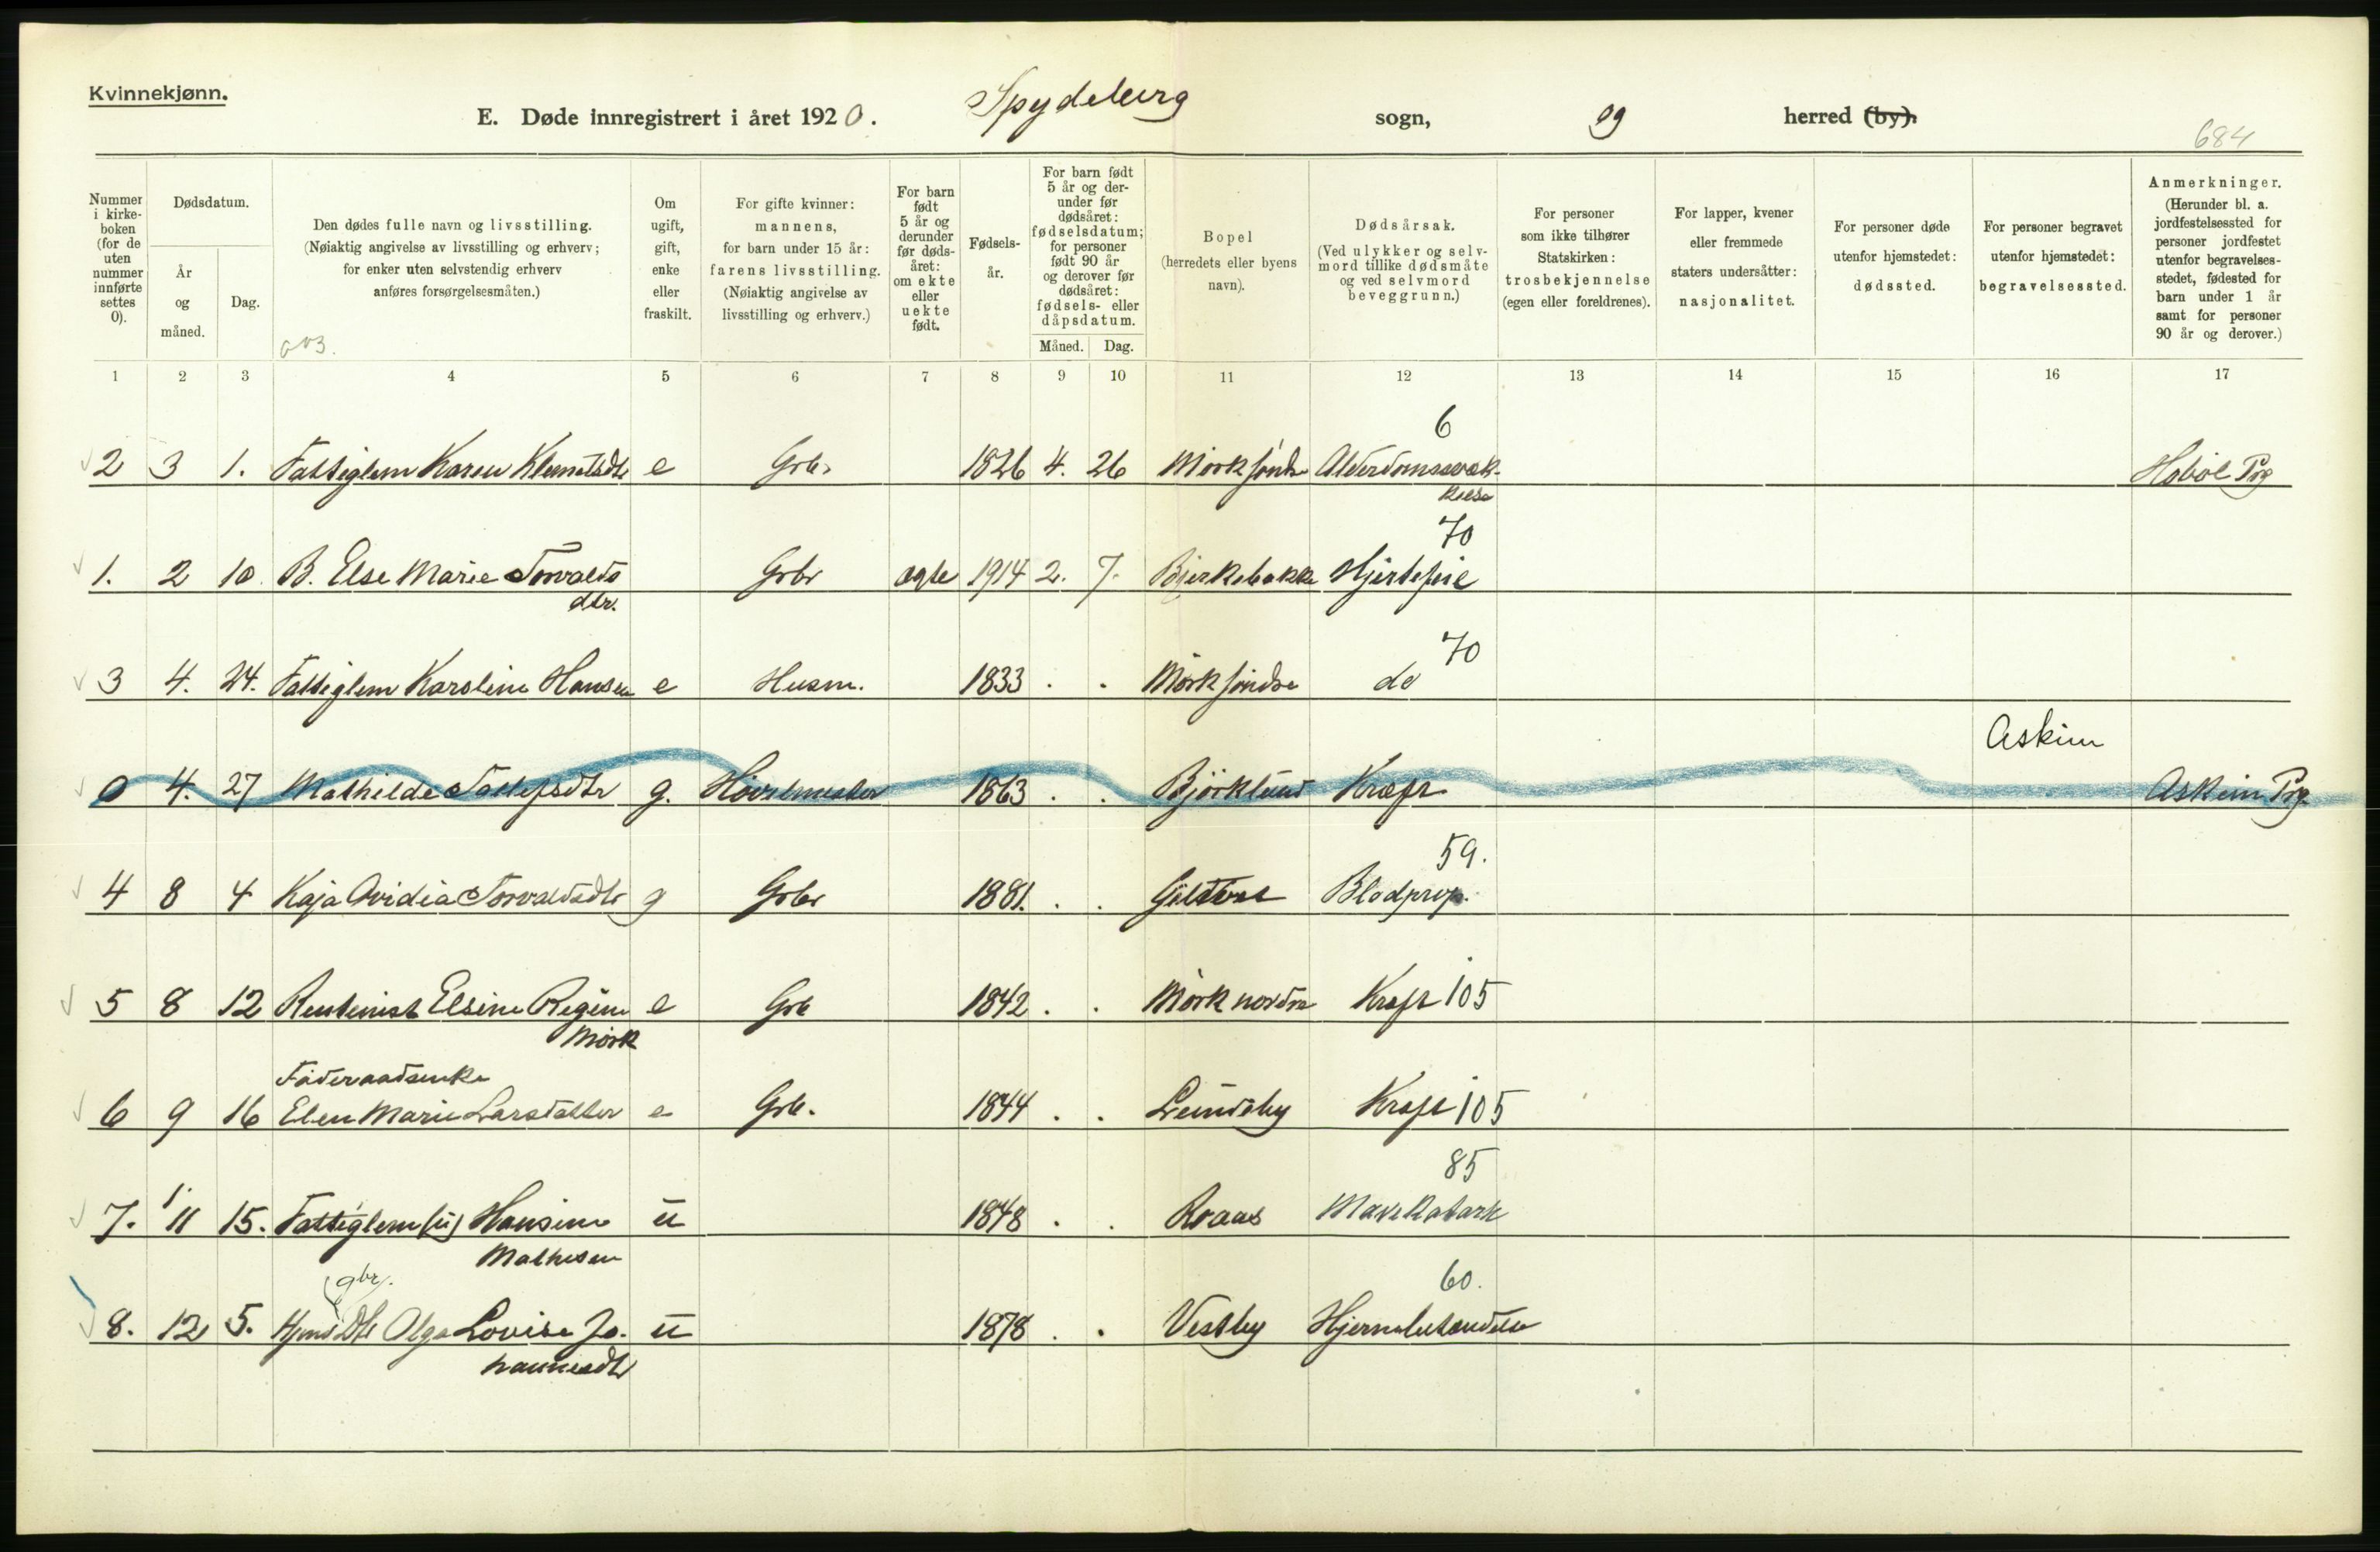 Kvinnekjønn.
E. Døde innregistrert i året 1920. Spydeberg sogn, og herred (by).
684
Nummer i kirkeboken (for de uten nummer innførte settes 0).
Dødsdatum.
År og måned.
Dag.
Den dødes fulle navn og livsstilling. (Nøiaktig angivelse av livsstilling og erhverv; for enker uten selvstendig erhverv anføres forsørgelsesmåten.)
Om ugift, gift, enke eller fraskilt.
For gifte kvinner: mannens, for barn under 15 år: farens livsstilling. (Nøiaktig angivelse av livsstilling og erhverv.)
For barn født 5 år og derunder før dødsåret: om ekte eller uekte født.
Fødselsår.
For barn født 5 år og derunder før dødsåret: fødselsdatum; for personer født 90 år og derover før dødsåret: fødsels- eller dåpsdatum.
Måned. Dag.
Bopel (herredets eller byens navn).
Dødsårsak. (Ved ulykker og selvmord tillike dødsmåte og ved selvmord beveggrunn.)
For personer som ikke tilhører Statskirken: trosbekjennelse (egen eller foreldrenes).
For lapper, kvener eller fremmede staters undersåtter: nasjonalitet.
For personer døde utenfor hjemstedet: dødssted.
For personer begravet utenfor hjemstedet: begravelsessted.
Anmerkninger. (Herunder bl. a. jordfestelsessted for personer jordfestet utenfor begravelsesstedet, fødested for barn under 1 år samt for personer 90 år og derover.)
1 2 3 4 5 6 7 8 9 10 11 12 13 14 15 16 17
6
2 3 1. Fattiglem Karen Klemetsdtr e Grbr 1826 4. 26 Mørk søndre Alderdomssvak-
kelse
Hobøl Prg
70
1. 2 10. B. Else Marie Torvalds
dtr.
Grbr ægte 1914 2. 7. Bjerkebakke Hjertefeil
70
3 4. 24. Fattiglem Karoline Hansen e Husm. 1833 . . Mørk søndre do
Askim
0 4. 27 Mathilde Tollefsdtr g. Høvelmester 1863 . . Bjørklund Kræft Askim Prg
59.
4 8 4 Kaja Ovidia Torvaldsdtr g Grbr 1881. . . Blodprop.
5 8 12 Rentenist Elsine Regine
Mørk
e Grb 1842 . . Mørk nordre Kræft 105
Føderaadsenke
6 9 16 Elen Marie Larsdatter e Grb. 1844 . . Lundeby Kræft 105
85
7. 11 15. Fattiglem Hansine
Mathisen
u 1848 . . Mavekatarh
(gbr).
60.
8. 12 5. Hjmv Dtr Olga Lovise Jo-
hannesdtr
u 1878 . . Vestby Hjernebetændelse